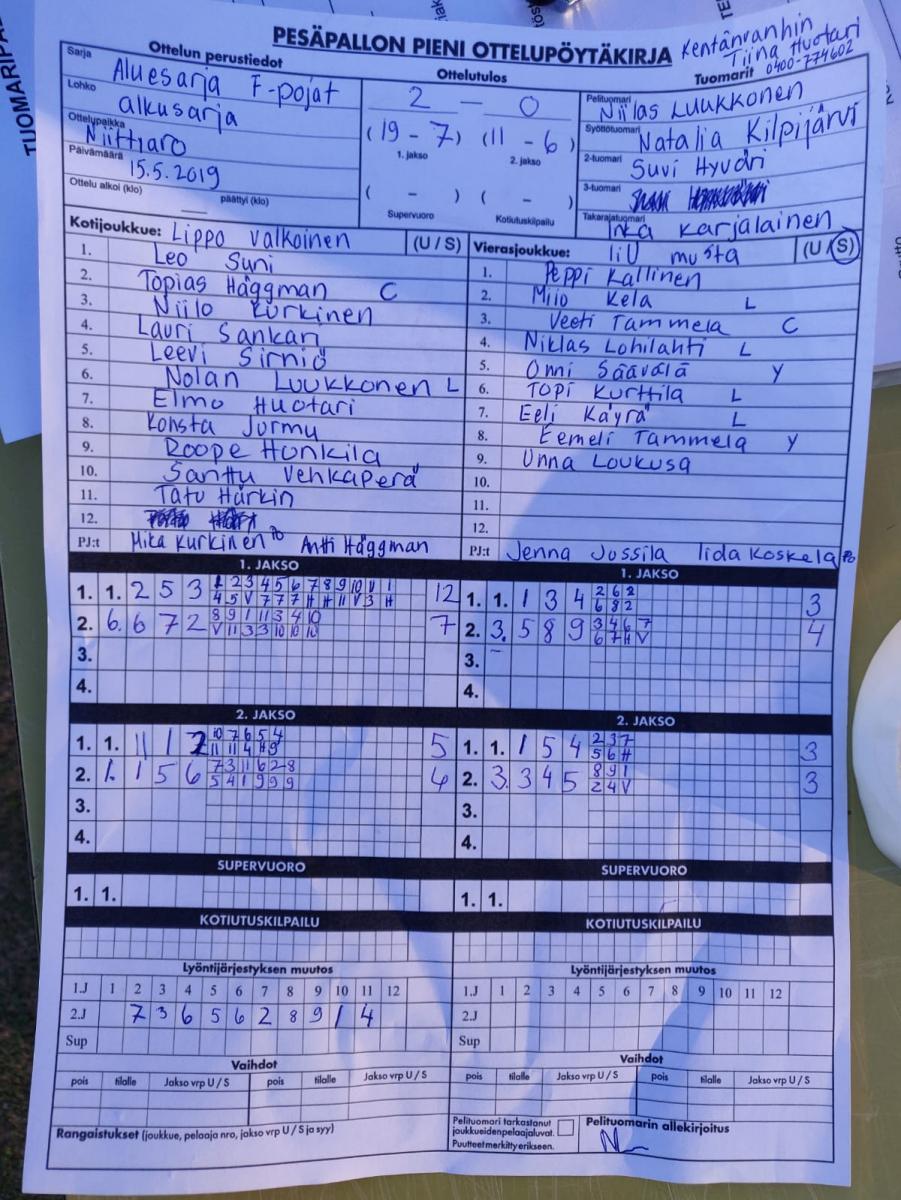 PESÄPALLON PIENI OTTELUPÖYTÄKIRJA
Kentänvanhin
Tiina Huotari
0400-774602
Ottelun perustiedot
Sarja Aluesarja F-pojat
Lohko alkusarja
Ottelupaikka Niittyaro
Päivämäärä 15.5.2019
Ottelu alkoi (klo) päättyi (klo)
Ottelutulos
2 - 0
(19 - 7) (11 - 6)
1. jakso 2. jakso
( - ) ( - )
Supervuoro Kotiutuskilpailu
Tuomarit
Pelituomari Niilas Luukkonen
Syöttötuomari Natalia Kilpijärvi
2-tuomari Suvi Hyväri
3-tuomari
Takarajatuomari Inka Karjalainen
Kotijoukkue: Lippo Valkoinen (U / S)
1. Leo Suni
2. Topias Häggman C
3. Niilo Kurkinen
4. Lauri Sankari
5. Leevi Sirniö
6. Nolan Luukkonen L
7. Elmo Huotari
8. Konsta Jurmu
9. Roope Honkila
10. Santtu Vehkaperä
11. Tatu Härkin
12.
PJ:t Mika Kurkinen Antti Häggman
Vierasjoukkue: IiU musta (U / S)
1. Peppi Kallinen
2. Miio Kela L
3. Veeti Tammela C
4. Niklas Lohilahti L
5. Onni Säävälä Y
6. Topi Kurttila L
7. Eeli Käyrä L
8. Eemeli Tammela Y
9. Unna Loukusa
10.
11.
12.
PJ:t Jenna Jussila Iida Koskela
1. JAKSO
1. 1. 2 5 3 1 2 3 4 5 6 7 8 9 10 V 1 12
4 5 V 7 7 7 H H 11 V 3 H
2. 6. 6 7 2 8 9 1 11 3 4 10 7
V 11 3 3 10 10 10
3.
4.
1. JAKSO
1. 1. 1 3 4 2 6 2 3
6 8 2
2. 3. 5 8 9 3 4 6 7 4
6 7 H V
3.
4.
2. JAKSO
1. 1. 11 1 2 10 7 6 5 4 5
11 11 4 H 9
2. 1. 1 5 6 7 3 11 6 2 8 4
5 4 1 9 9 9
3.
4.
2. JAKSO
1. 1. 1 5 4 2 3 7 3
5 6 H
2. 3. 3 4 5 8 9 1 3
2 4 V
3.
4.
SUPERVUORO
1. 1.
SUPERVUORO
1. 1.
KOTIUTUSKILPAILU
KOTIUTUSKILPAILU
Lyöntijärjestyksen muutos
1.J 1 2 3 4 5 6 7 8 9 10 11 12
2.J 7 3 6 5 6 2 8 9 1 4
Sup
Lyöntijärjestyksen muutos
1.J 1 2 3 4 5 6 7 8 9 10 11 12
2.J
Sup
Vaihdot
pois tilalle Jakso vrp U / S pois tilalle Jakso vrp U / S
Vaihdot
pois tilalle Jakso vrp U / S pois tilalle Jakso vrp U / S
Rangaistukset (joukkue, pelaaja nro, jakso vrp U / S ja syy)
Pelituomari tarkastanut
joukkueiden pelaajaluvat.
Puutteet merkitty erikseen.
Pelituomarin allekirjoitus